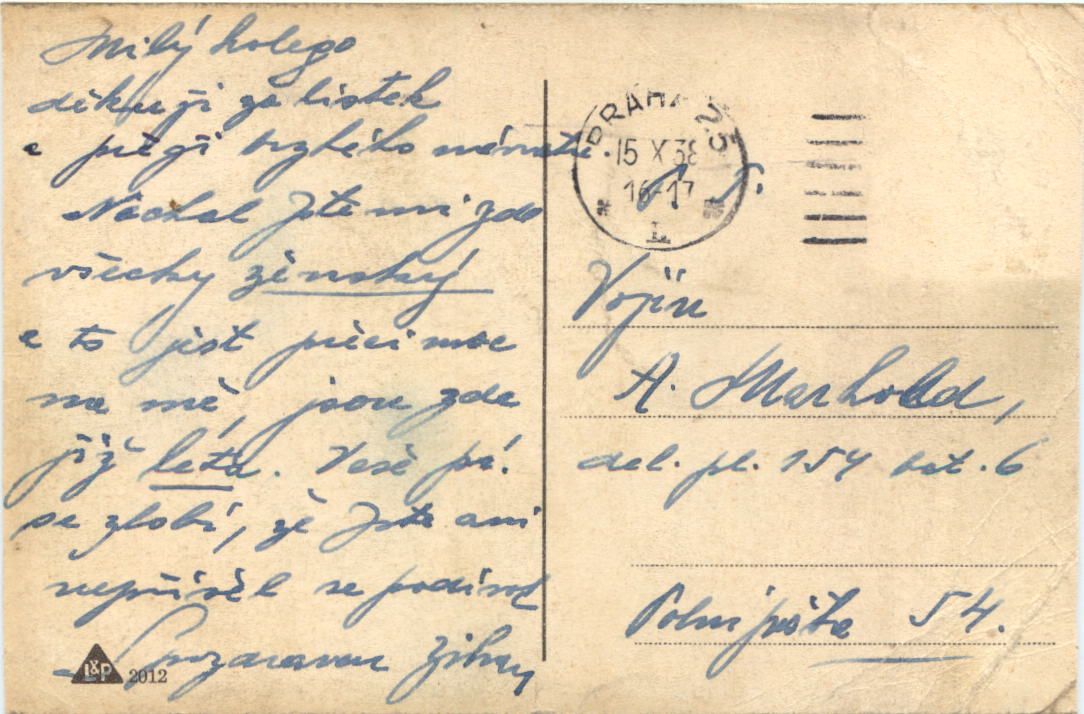 Milý kolego
děkuji za lístek
a přeji brzkého návratu.
Nechal jste mi zde
všecky ženský
a to jest přeci moc
na mě, jsou zde
již léta. Vaše pí.
se zlobí, že jste ani
nepřišel se podívat
S pozdravem
L&P 2012
PRAHA 25
15 X 38
16-17
L
P. T.
Vojín
A. Marhold,
del. pl. 154 bat. 6
Polní pošta 54.